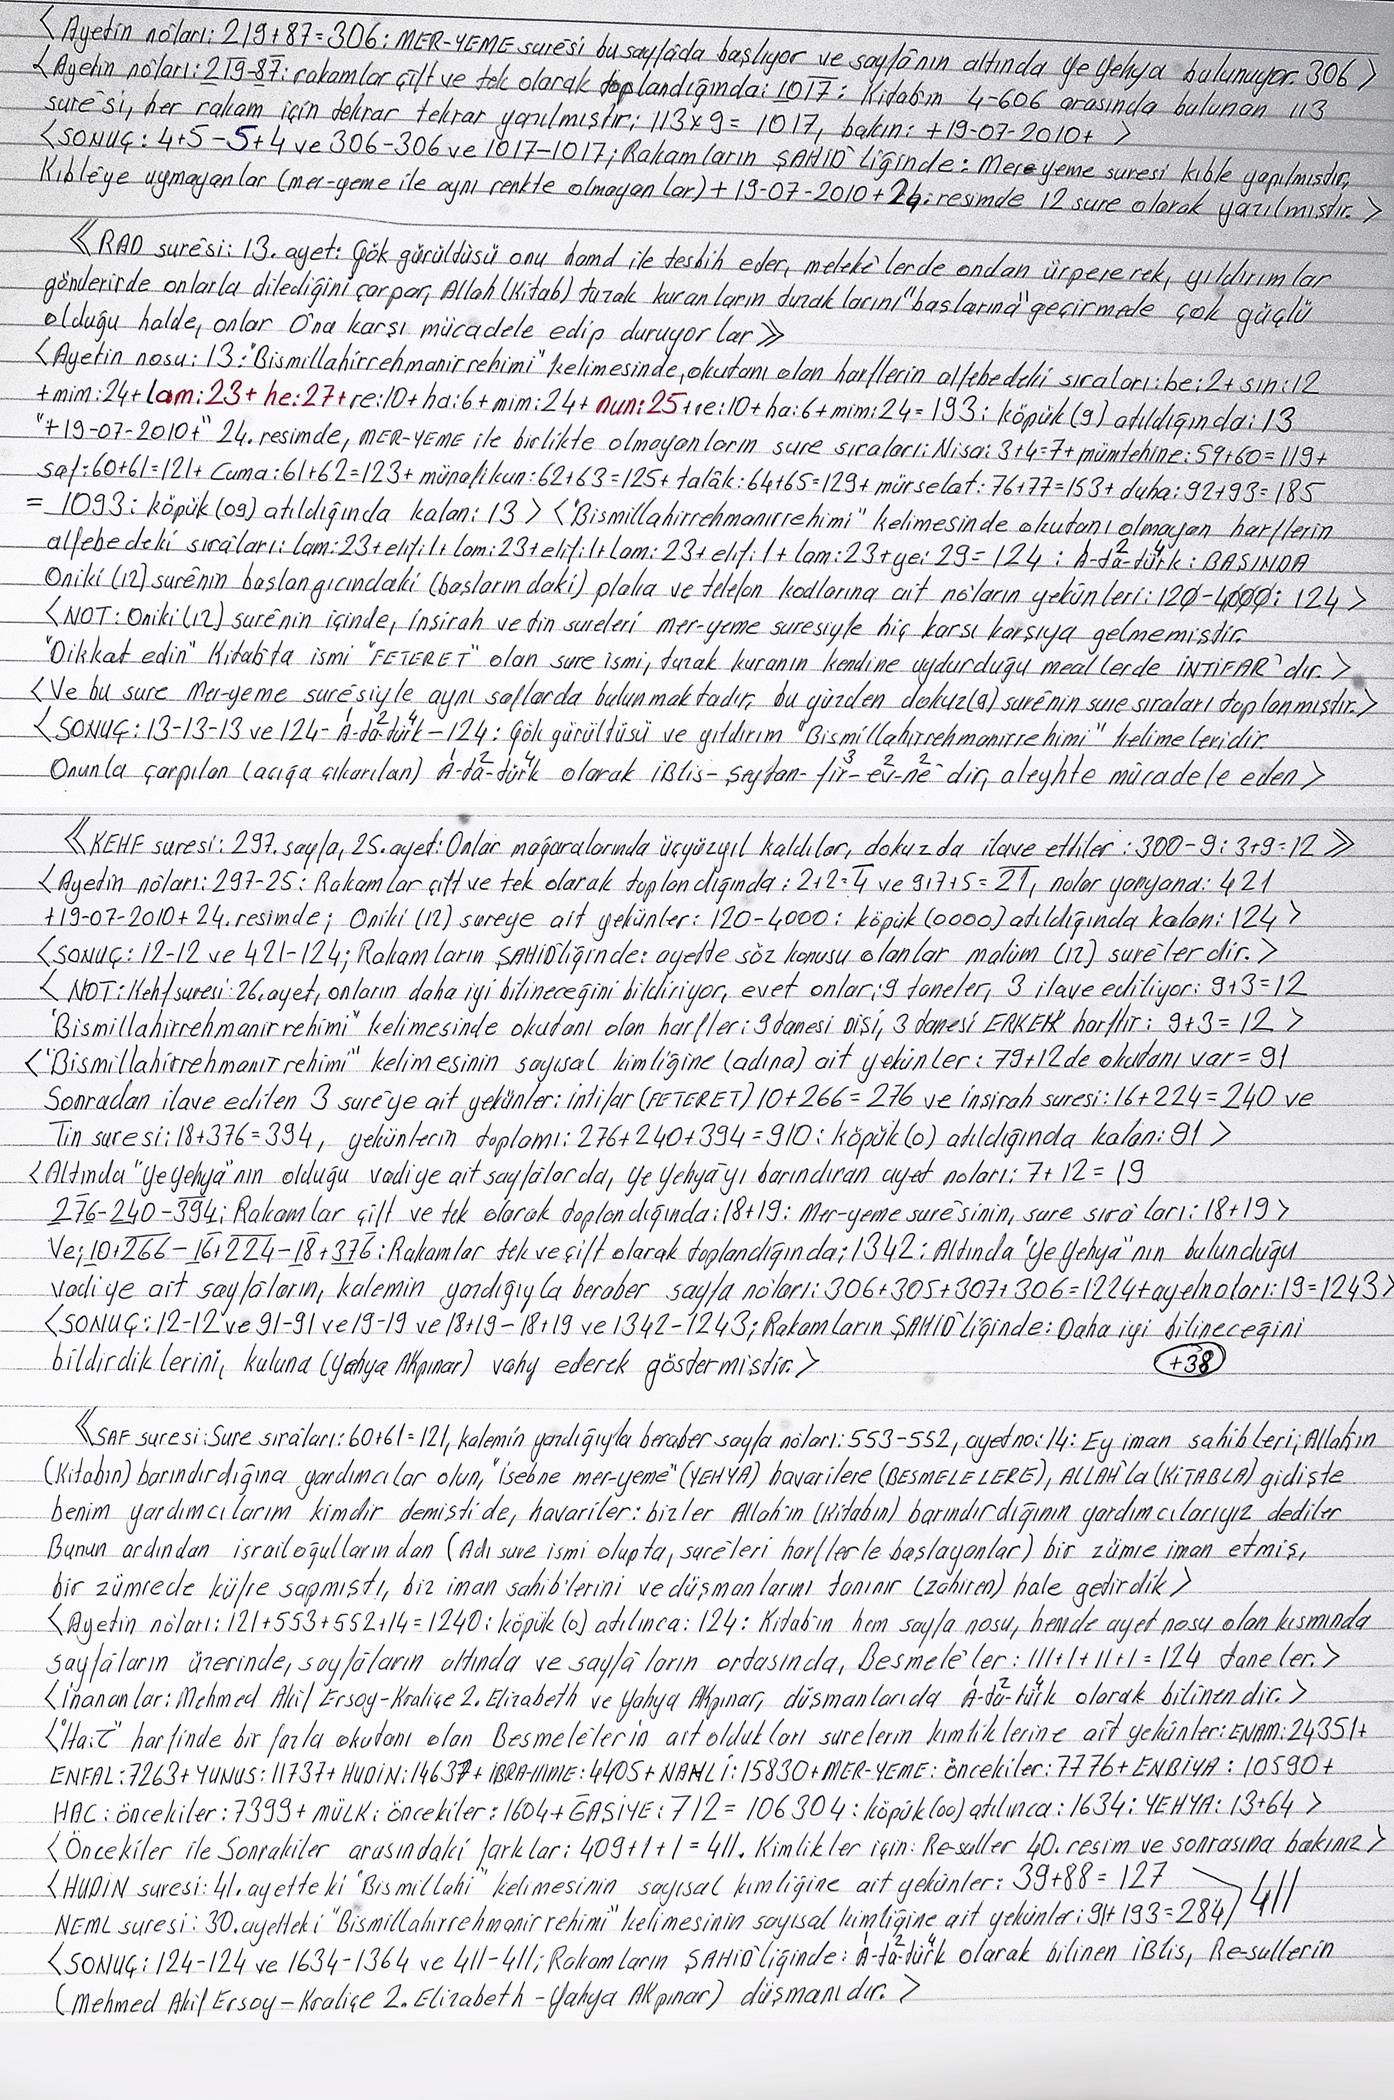 <Ayetin nôları: 219+87=306: MER-YEME suresi bu sayfâda başlıyor ve sayfâ'nın altında Ye Yehya bulunuyor. 306>
<Ayetin nôları: 219-87: rakamlar çift ve tek olarak toplandığında: 1017: Kitab'ın 4-606 arasında bulunan 113
surê'si, her rakam için tekrar tekrar yazılmıştır; 113x9=1017, bakın: +19-07-2010+ >
<SONUÇ: 4+5-5+4 ve 306-306 ve 1017-1017; Rakamların ŞAHİD'liğinde: Mer-yeme suresi kıble yapılmıştır,
Kıblêye uymayanlar (mer-yeme ile aynı renkte olmayanlar) +19-07-2010+24. resimde 12 sure olarak yazılmıştır.>
《RAD surêsi: 13. ayet: Gök gürültüsü onu hamd ile tesbih eder, melekê'lerde ondan ürpererek, yıldırımlar
gönderirde onlarla dilediğini çarpar, Allah (Kitab) tuzak kuranların tuzaklarını "başlarına" geçirmede çok güçlü
olduğu halde, onlar O'na karşı mücadele edip duruyorlar》
<Ayetin nosu: 13: "Bismillahirrehmanirrehimi" kelimesinde, okutanı olan harflerin alfebedeki sıraları: be:2+sin:12
+mim:24+lam:23+he:27+re:10+ha:6+mim:24+nun:25+re:10+ha:6+mim:24=193: köpük(9) atıldığında: 13
"+19-07-2010+" 24. resimde, MER-YEME ile birlikte olmayanların sure sıraları: Nisa: 3+4=7+ mümtehine: 59+60=119+
saf: 60+61=121+ Cuma: 61+62=123+ münafikun: 62+63=125+ talâk: 64+65=129+ mürselat: 76+77=153+ duha: 92+93=185
= 1093: köpük (09) atıldığında kalan: 13> <"Bismillahirrehmanirrehimi" kelimesinde okutanı olmayan harflerin
alfebedeki sıraları: lam:23+elif:1+lam:23+elif:1+lam:23+elif:1+lam:23+ye:29=124: A-ta-türk: BAŞINDA
Oniki (12) surênin başlangıcındaki (başlarındaki) plaka ve telefon kodlarına ait nôların yekünleri: 120-4000: 124>
<NOT: Oniki (12) surênin içinde, insirah ve tin sureleri mer-yeme suresiyle hiç karşı karşıya gelmemiştir.
"Dikkat edin" Kitab'ta ismi "FETERET" olan sure ismi, tuzak kuranın kendine uydurduğu meallerde İNTİFAR'dır.>
<Ve bu sure Mer-yeme surêsiyle aynı saflarda bulunmaktadır, bu yüzden dokuz(9) surênin sure sıraları toplanmıştır.>
<SONUÇ: 13-13-13 ve 124-A-ta-türk-124: Gök gürültüsü ve yıldırım "Bismillahirrehmanirrehimi" kelimeleridir.
Onunla çarpılan (açığa çıkarılan) A-ta-türk olarak iBlis-Şeytan-fir-ev-ne'dir, aleyhte mücadele eden>
《KEHF suresi: 297. sayfa, 25. ayet: Onlar mağaralarında üçyüzyıl kaldılar, dokuzda ilave ettiler: 300-9: 3+9=12》
<Ayetin nôları: 297-25: Rakamlar çift ve tek olarak toplandığında: 2+2=4 ve 9+7+5=21, nolar yanyana: 421
+19-07-2010+24. resimde; Oniki (12) sureye ait yekünler: 120-4000: köpük (0000) atıldığında kalan: 124>
<SONUÇ: 12-12 ve 421-124; Rakamların ŞAHİD'liğinde: ayette söz konusu olanlar malûm (12) surê'ler dir.>
<NOT: Kehf suresi: 26. ayet, onların daha iyi bilineceğini bildiriyor, evet onlar; 9 taneler, 3 ilave ediliyor: 9+3=12
"Bismillahirrehmanirrehimi" kelimesinde okutanı olan harfler: 9 danesi DİŞİ, 3 danesi ERKEK harftir: 9+3=12>
<"Bismillahirrehmanirrehimi" kelimesinin sayısal kimliğine (adına) ait yekünler: 79+12 de okutanı var=91
Sonradan ilave edilen 3 surê'ye ait yekünler: intifar (FETERET) 10+266=276 ve insirah suresi: 16+224=240 ve
Tin suresi: 18+376=394, yekünlerin toplamı: 276+240+394=910: köpük (0) atıldığında kalan: 91>
<Altında "Ye Yehya"nın olduğu vadiye ait sayfâlarda, Ye Yehya'yı barındıran ayet noları: 7+12=19
276-240-394; Rakamlar çift ve tek olarak toplandığında: 18+19: Mer-yeme surê'sinin, sure sıra'ları: 18+19>
Ve; 10+266-16+224-18+376: Rakamlar tek ve çift olarak toplandığında; 1342: Altında "Ye Yehya"nın bulunduğu
vadiye ait sayfâların, kalemin yazdığıyla beraber sayfa nôları: 306+305+307+306=1224+ayet noları: 19=1243>
<SONUÇ: 12-12 ve 91-91 ve 19-19 ve 18+19-18+19 ve 1342-1243; Rakamların ŞAHİD'liğinde: Daha iyi bilineceğini
bildirdiklerini, kuluna (Yahya AKpınar) vahy ederek göstermiştir.> +38
《SAF suresi: Sure sıra'ları: 60+61=121, kalemin yazdığıyla beraber sayfa nôları: 553-552, ayet no: 14: Ey iman sahibleri; Allah'ın
(Kitabın) barındırdığına yardımcılar olun, "isebne mer-yeme" (YEHYA) havarilere (BESMELELERE), ALLAH'la (KİTABLA) gidişte
benim yardımcılarım kimdir demişti de, havariler: bizler Allah'ın (Kitabın) barındırdığının yardımcılarıyız dediler
Bunun ardından israiloğullarından (Adı sure ismi olupta, surê'leri harflerle başlayanlar) bir zümre iman etmiş,
bir zümrede küfre sapmıştı, biz iman sahib'lerini ve düşmanlarını tanınır (zahiren) hale getirdik>
<Ayetin nôları: 121+553+552+14=1240: köpük (0) atılınca: 124: Kitab'ın hem sayfa nosu, hemde ayet nosu olan kısmında
sayfâların üzerinde, sayfâların altında ve sayfâ'ların ortasında, Besmelê'ler: 111+1+11+1=124 taneler.>
<İnananlar: Mehmed Akif Ersoy-Kraliçe 2. Elizabeth ve Yahya AKpınar, düşmanlarıda A-ta-türk olarak bilinendir.>
<"Hait" harfinde bir fazla okutanı olan Besmelêlerin ait oldukları surelerin kimliklerine ait yekünler: ENAM: 24351+
ENFAL: 7263+YUNUS: 11737+HUDİN: 14637+İBRA-HİME: 4405+NAHLİ: 15830+MER-YEME: öncekiler: 7776+ENBİYA: 10590+
HAC: öncekiler: 7399+MÜLK: öncekiler: 1604+GAŞİYE: 712=106304: köpük (00) atılınca: 1634: YEHYA: 13+64>
<Öncekiler ile Sonrakiler arasındaki farklar: 409+1+1=411. Kimlikler için: Re-suller 40. resim ve sonrasına bakınız>
<HUDİN suresi: 41. ayetteki "Bismillahi" kelimesinin sayısal kimliğine ait yekünler: 39+88=127
NEML suresi: 30. ayetteki "Bismillahirrehmanirrehimi" kelimesinin sayısal kimliğine ait yekünler: 91+193=284 411
<SONUÇ: 124-124 ve 1634-1364 ve 411-411; Rakamların ŞAHİD'liğinde: A-ta-türk olarak bilinen iBlis, Re-sullerin
(Mehmed Akif Ersoy-Kraliçe 2. Elizabeth-Yahya AKpınar) düşmanıdır.>